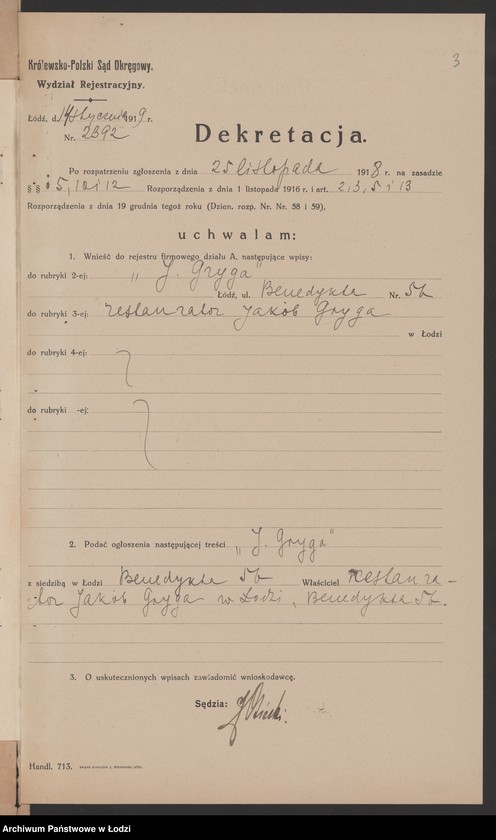 3
Królewsko-Polski Sąd Okręgowy.
Wydział Rejestracyjny.
Łódź, d. 14 stycznia 1919 r.
Nr. 2392
Dekretacja.
Po rozpatrzeniu zgłoszenia z dnia 25 listopada 1918 r. na zasadzie
§ § 5, 10 i 12 Rozporządzenia z dnia 1 listopada 1916 r. i art. 2, 3, 5 i 13
Rozporządzenia z dnia 19 grudnia tegoż roku (Dzien. rozp. Nr. Nr. 58 i 59),
uchwalam:
1. Wnieść do rejestru firmowego działu A. następujące wpisy:
do rubryki 2-ej: „J. Gryga"
Łódź, ul. Benedykta Nr. 56
do rubryki 3-ej: restaurator Jakób Gryga
w Łodzi
do rubryki 4-ej:
do rubryki -ej:
2. Podać ogłoszenia następującej treści „J. Gryga"
z siedzibą w Łodzi Benedykta 56 Właściciel restaura-
tor Jakób Gryga w Łodzi, Benedykta 56.
3. O uskutecznionych wpisach zawiadomić wnioskodawcę.
Sędzia:
Handl. 713.
Archiwum Państwowe w Łodzi